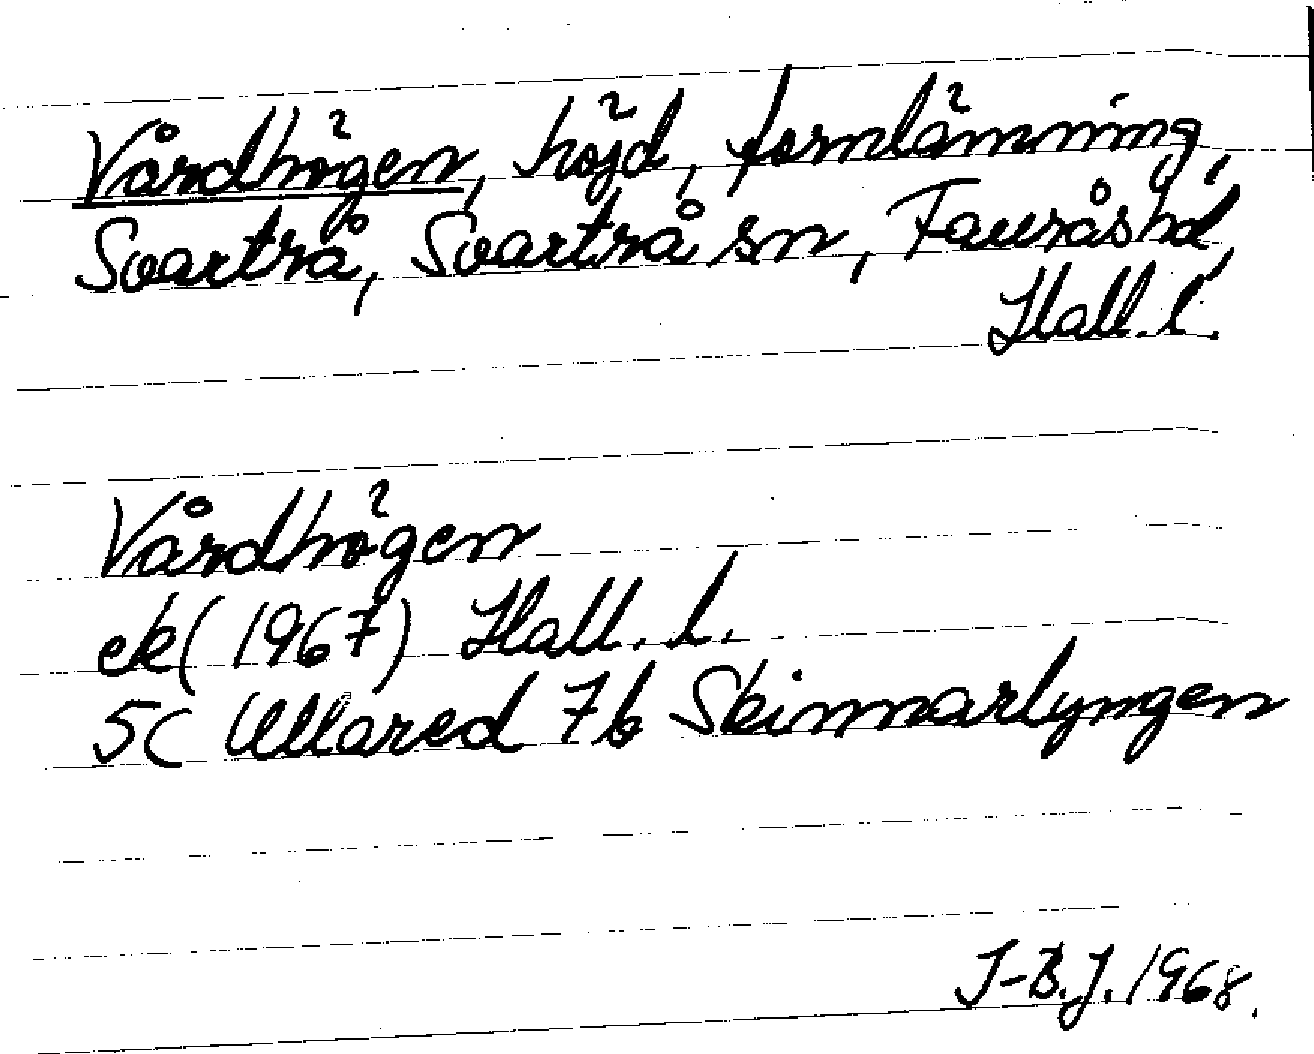 Vårdhögen, höjd, fornlämning,
Svartrå, Svartrå sn, Faurås hd,
Hall. l.
Vårdhögen
ek (1967) Hall. l.
5C Ullared 7b Skinnarlyngen
J-B.J. 1968.